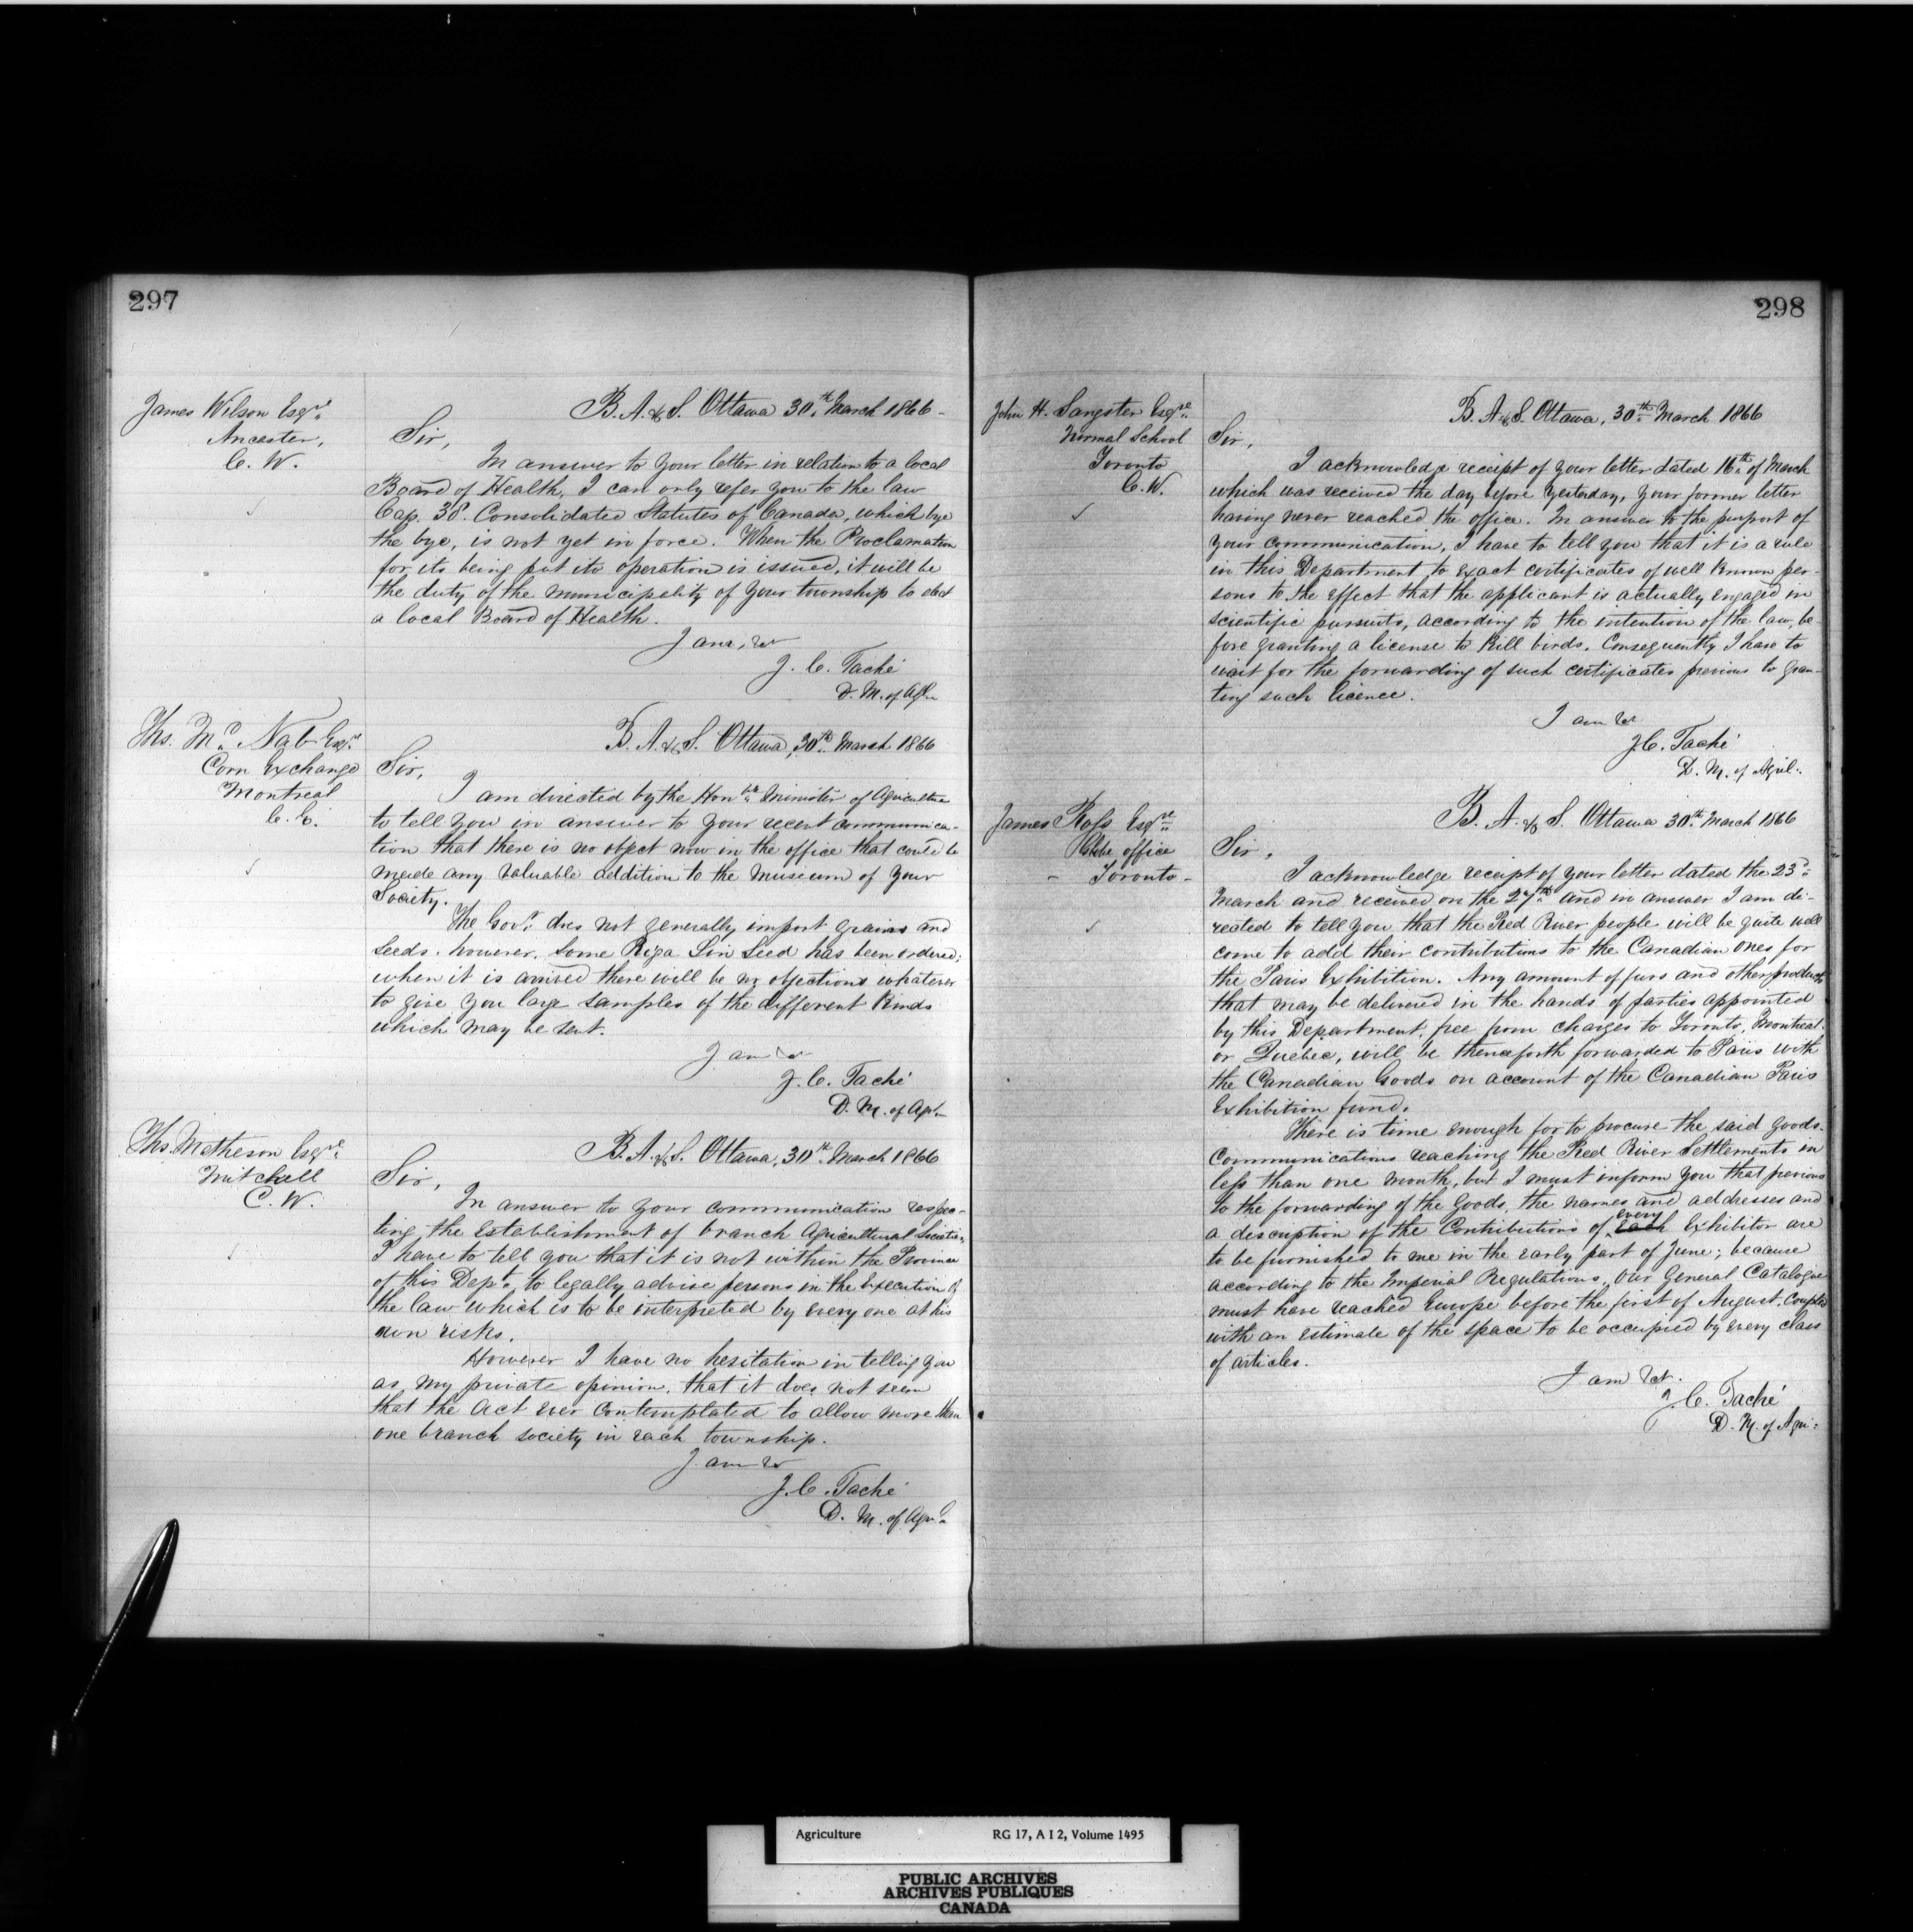 297
James Wilson Esqre
Ancester,
C. W.
B. A. & S. Ottawa 30th March 1866 -
Sir,
In answer to your letter in relation to a local
Board of Health, I can only refer you to the law
Cap. 38. Consolidated Statutes of Canada, which bye
the bye, is not yet in force. When the Proclamation
for its being put ito operation is issued, it will be
the duty of the municipality of your township to elect
a local Board of Health.
I am, &
J. C. Taché
D. M. of Agr.
Ths. Mc Nab Esqre
Corn Exchange
Montreal
C. E.
B. A. & S. Ottawa, 30th March 1866
Sir,
I am directed by the Honble Minister of Agriculture
to tell you in answer to your recent communica-
tion that there is no object now in the office that could be
made any valuable addition to the Museum of your
Society.
The Govt does not generally import grains and
seeds. however, some Riga Lin Seed has been ordered;
when it is arrived there will be no objections whatever
to give you large samples of the different kinds
which may be sent.
I am &
J. C. Taché
D. M. of Agr.
Ths. Matheson Esqre
Mitchell
C. W.
B. A. & S. Ottawa, 30th March 1866
Sir,
In answer to your communication respec-
ting the establishment of branch Agricultural Societies,
I have to tell you that it is not within the Province
of this Dept. to legally advise persons in the Execution of
the law which is to be interpreted by every one at his
own risks.
However I have no hesitation in telling you
as my private opinion, that it does not seem
that the Act ever contemplated to allow more than
one branch society in each township.
I am &
J. C. Taché
D. M. of Agr.
298
John H. Sangster Esqre
Normal School
Toronto
C. W.
B. A. & S. Ottawa, 30th March 1866
Sir,
I acknowledge receipt of your letter dated 16th of March
which was received the day before yesterday, your former letter
having never reached the office. In answer to the purport of
your communication, I have to tell you that it is a rule
in this Department to exact certificates of well known per-
sons to the effect that the applicant is actually engaged in
scientific pursuits, according to the intention of the law, be-
fore granting a license to kill birds. Consequently I have to
wait for the forwarding of such certificates previous to gran-
ting such licence.
I am &
J. C. Taché
D. M. of Agril.
James Ross Esqre
Globe office
- Toronto -
B. A. & S. Ottawa 30th March 1866
Sir,
I acknowledge receipt of your letter dated the 23d
March and received on the 27th and in answer I am di-
rected to tell you that the Red River people will be quite well
come to add their contributions to the Canadian ones for
the Paris Exhibition. Any amount of furs and other products
that may be delivered in the hands of parties appointed
by this Department, free from charges to Toronto, Montreal.
or Quebec, will be thenceforth forwarded to Paris with
the Canadian Goods on account of the Canadian Paris
Exhibition fund.
There is time enough for to procure the said goods.
Communications reaching the Red River Settlements in
less than one month, but I must inform you that previous
to the forwarding of the Goods, the names and addresses and
a description of the Contributions of every each Exhibitor are
to be furnished to me in the early part of June; because
according to the Imperial Regulations, Our General Catalogue
must have reached Europe before the first of August, Coupled
with an estimate of the space to be occupied by every class
of articles.
I am &c.
J. C. Taché
D. M. of Agri.
Agriculture RG 17, A I 2, Volume 1495
PUBLIC ARCHIVES
ARCHIVES PUBLIQUES
CANADA